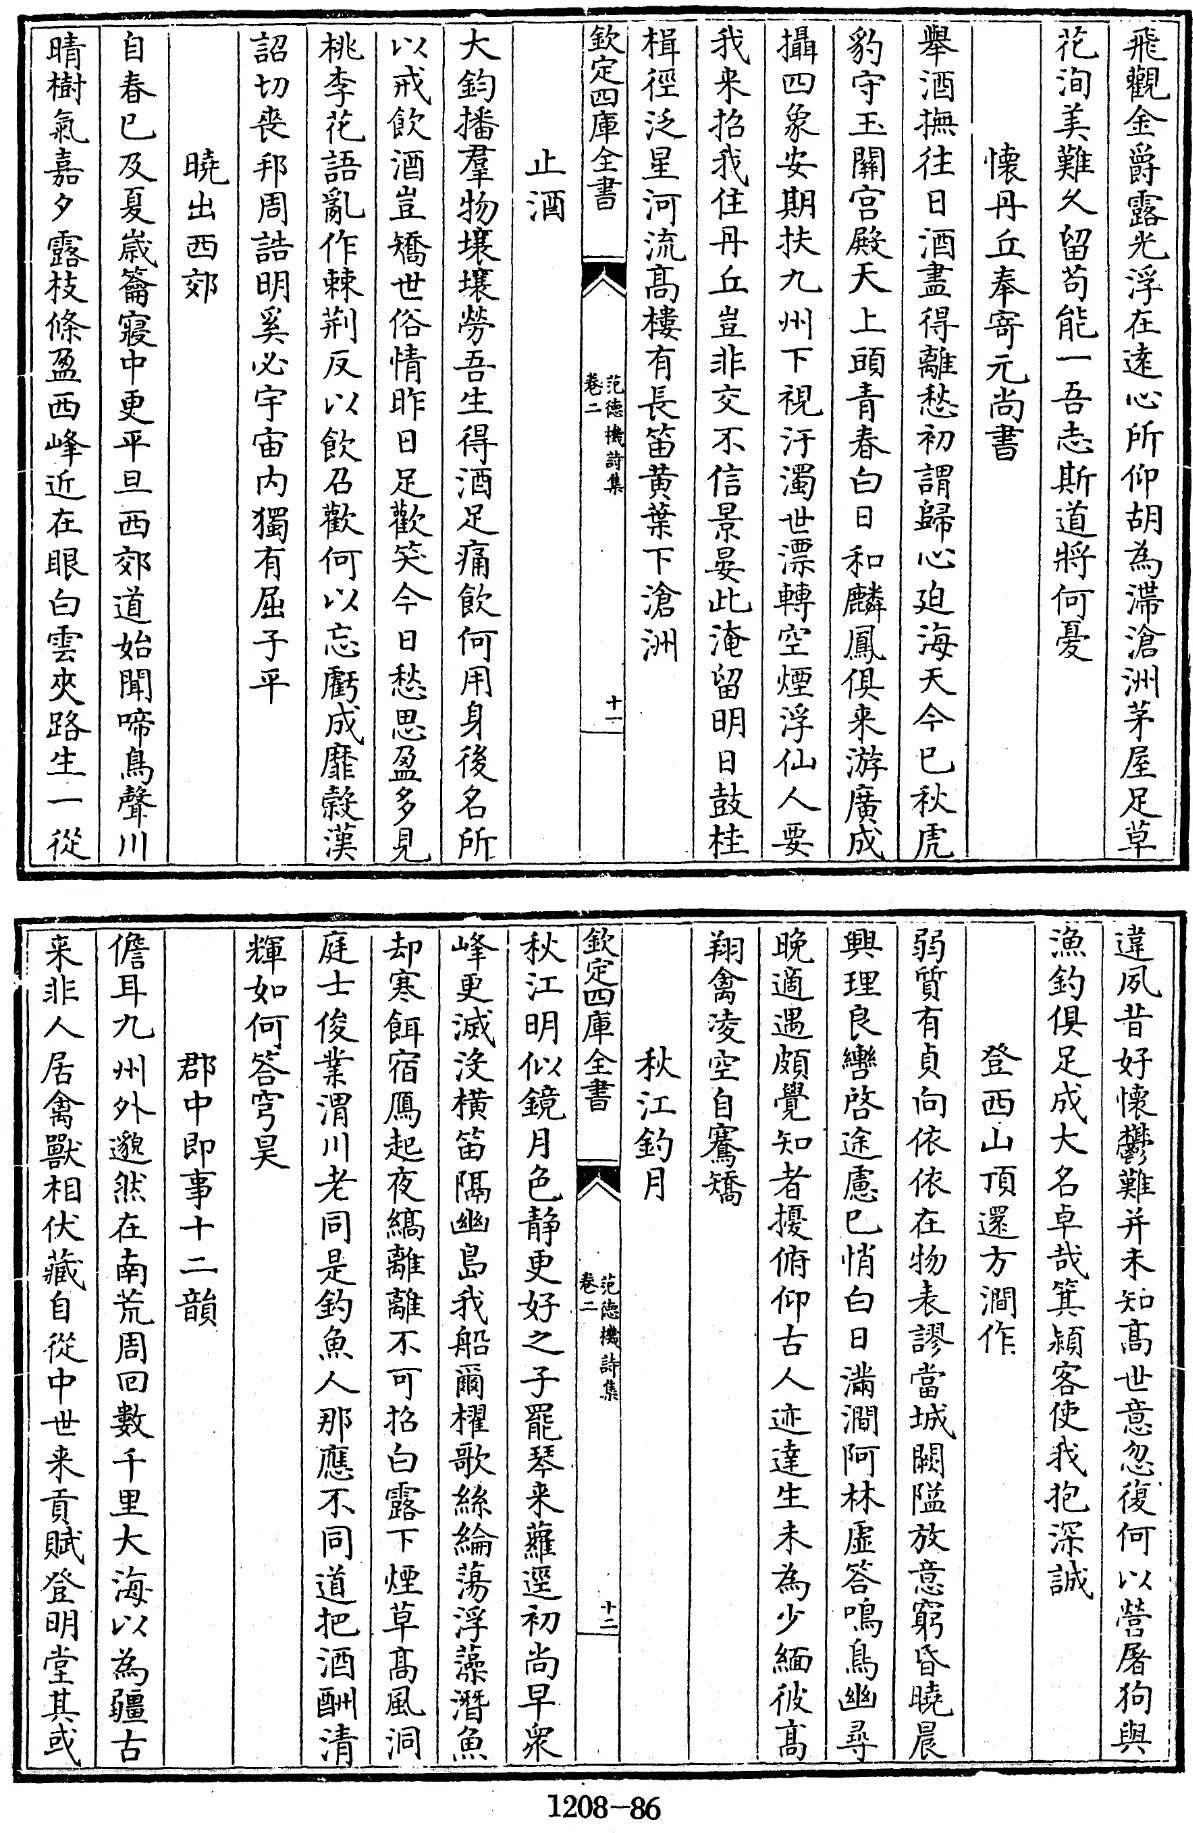 飛觀金爵露光浮在遠心所仰胡為滯滄洲茅屋足草
花洵美難久留苟能一吾志斯道將何憂
懷丹丘奉寄元尚書
舉酒撫往日酒盡得離愁初謂歸心廹海天今已秋虎
豹守玉關宫殿天上頭青春白日和麟鳳俱来游廣成
攝四象安期扶九州下視汙濁世漂轉空煙浮仙人要
我来招我住丹丘豈非交不信景晏此淹留明日鼓桂
楫徑泛星河流髙樓有長笛黄葉下滄洲
欽定四庫全書
范德機詩集
卷二
十一
止酒
大鈞播羣物壤壤勞吾生得酒足痛飲何用身後名所
以戒飲酒豈矯世俗情昨日足歡笑今日愁思盈多見
桃李花語亂作棘荆反以飲召歡何以忘虧成靡穀漢
詔切喪邦周誥明奚必宇宙内獨有屈子平
曉出西郊
自春已及夏嵗籥寝中更平旦西郊道始聞啼鳥聲川
晴樹氣嘉夕露枝條盈西峰近在眼白雲夾路生一從
違夙昔好懷鬱難并未知髙世意忽復何以營屠狗與
漁釣俱足成大名卓哉箕潁客使我抱深誠
登西山頂還方澗作
弱質有貞向依依在物表謬當城闕隘放意窮昏曉晨
興理良轡啓途慮已悄白日滿澗阿林虛答鳴鳥幽尋
晚適遇頗覺知者擾俯仰古人迹達生未為少緬彼髙
翔禽凌空自騫矯
秋江釣月
欽定四庫全書
范德機詩集
卷二
十二
秋江明似鏡月色静更好之子罷琴来蘿逕初尚早衆
峰更滅没横笛隔幽島我船爾櫂歌絲綸蕩浮藻潛魚
却寒餌宿鴈起夜縞離離不可招白露下煙草髙風洞
庭士俊業渭川老同是釣魚人那應不同道把酒酬清
輝如何答穹昊
郡中即事十二韻
儋耳九州外邈然在南荒周回數千里大海以為疆古
来非人居禽獸相伏藏自從中世来貢賦登明堂其或
1208-86